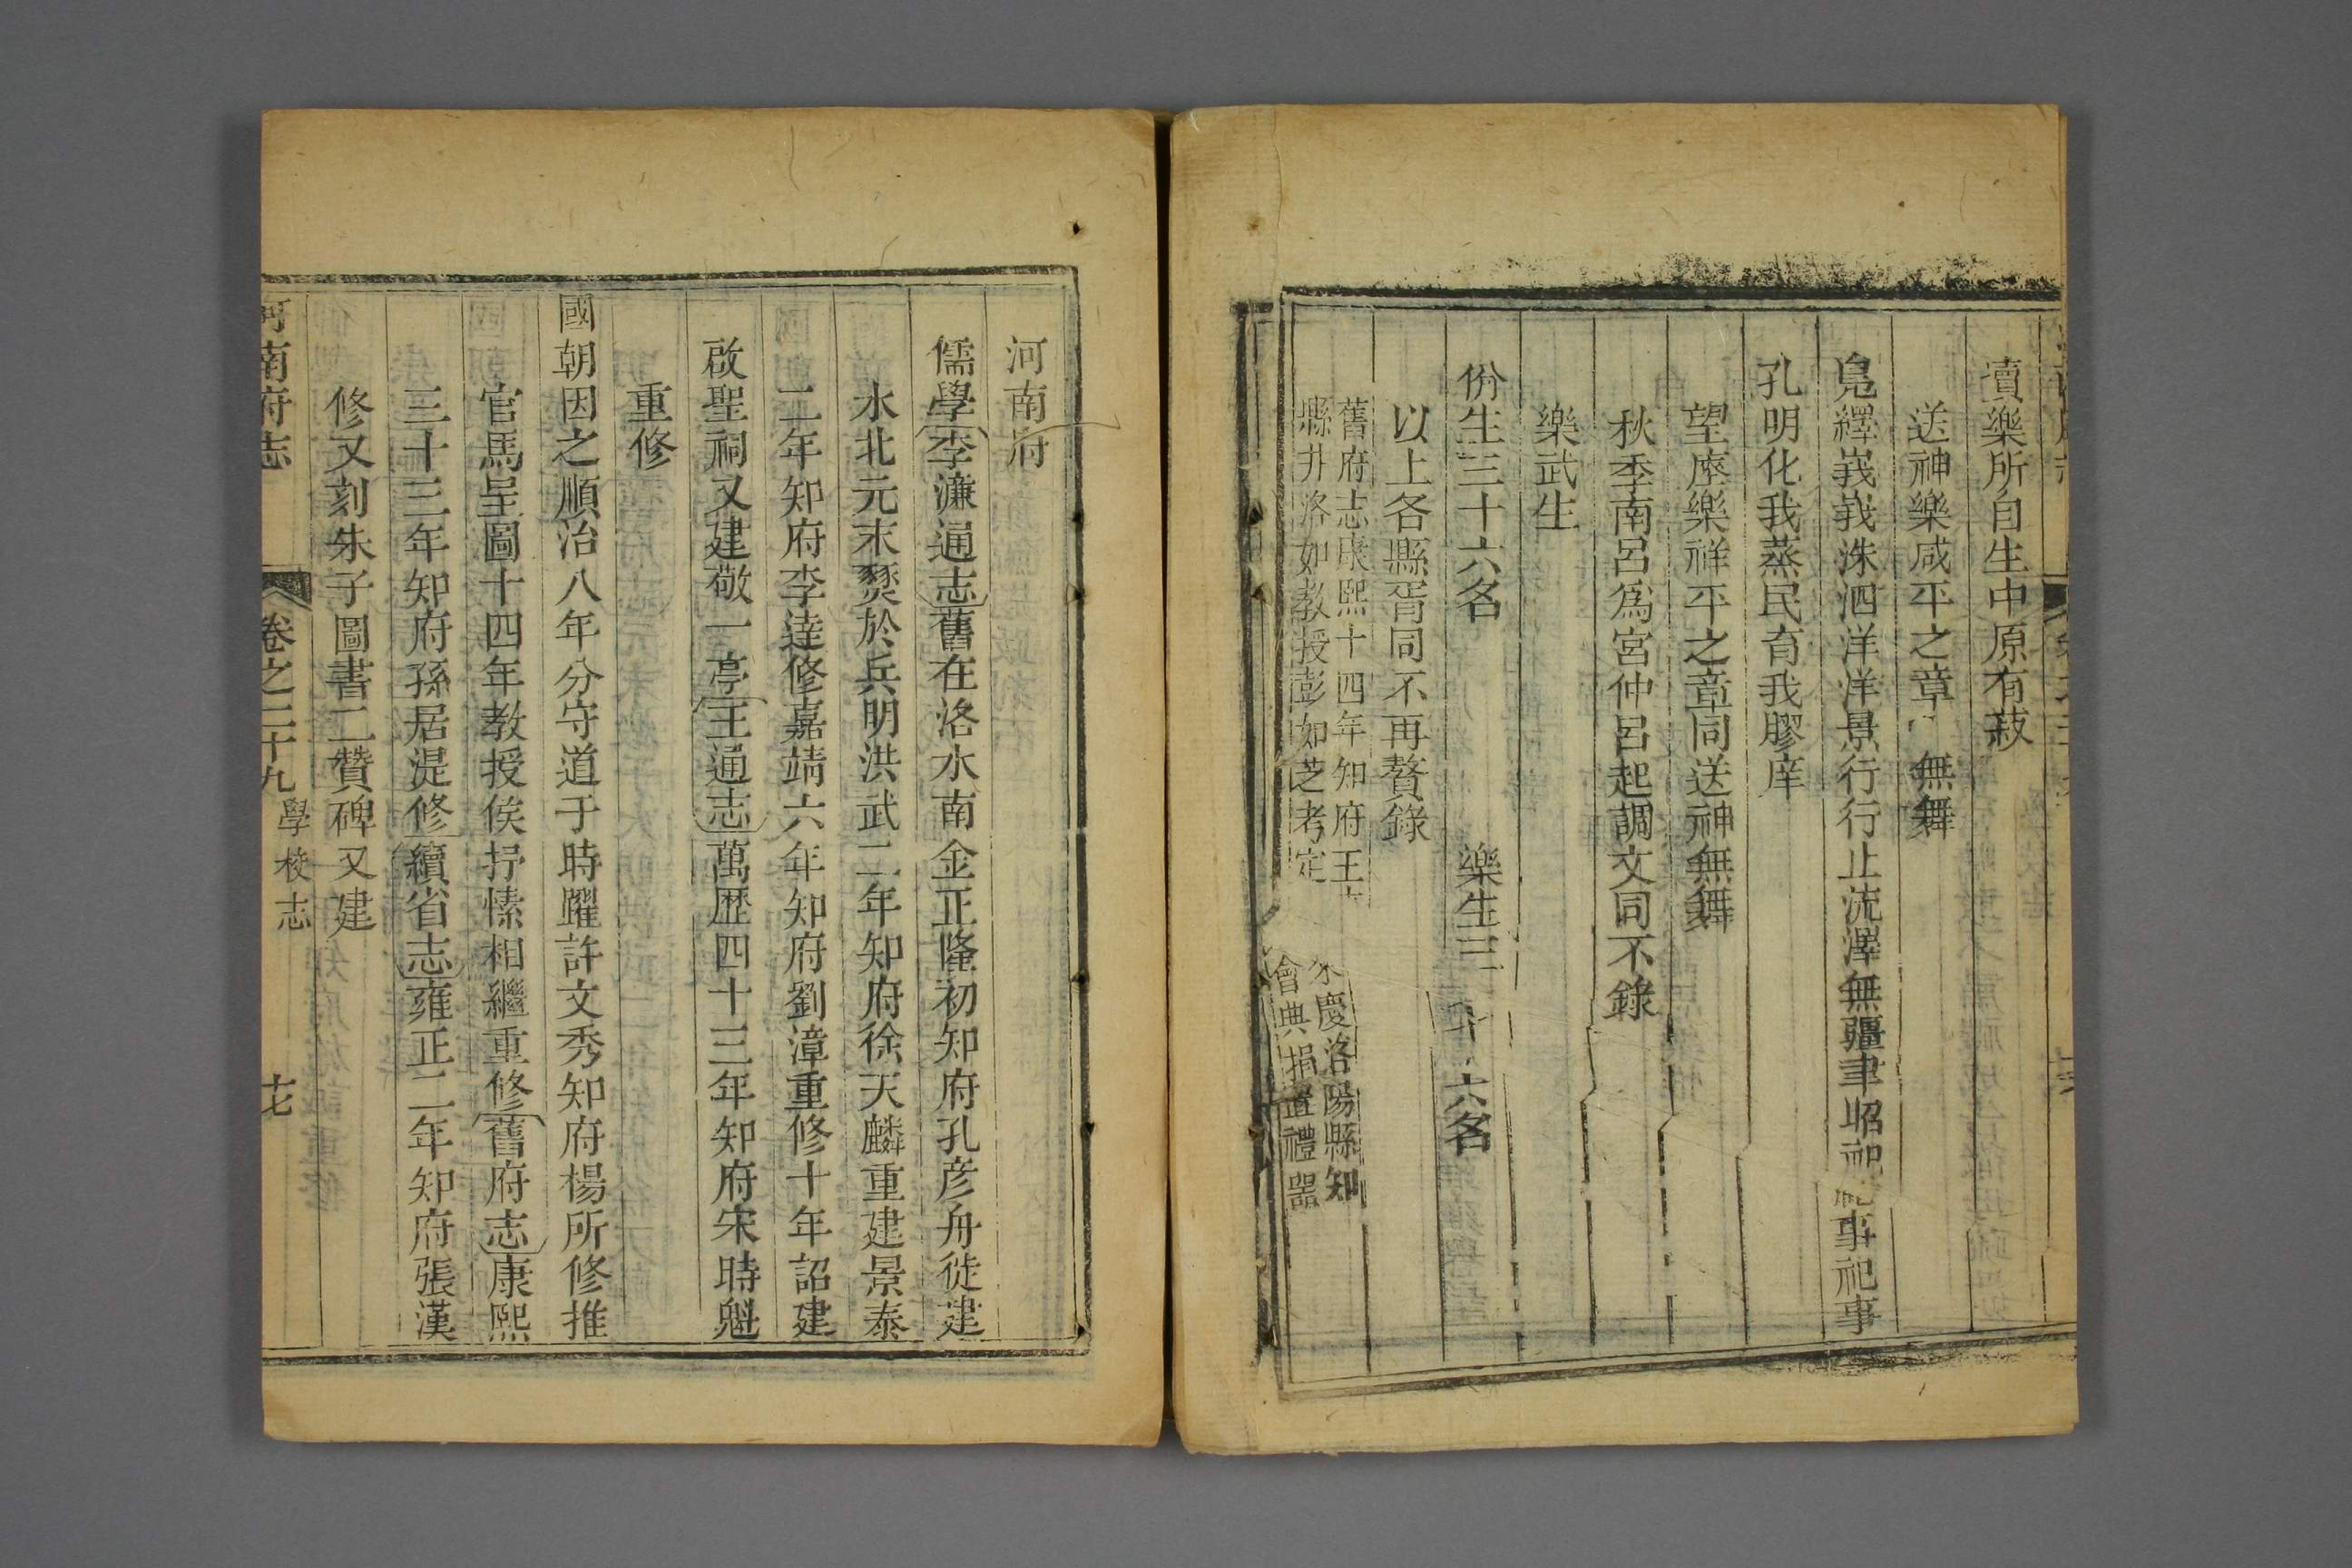 瀆樂所自生中原有菽
送神樂咸平之章 無舞
鳧繹峩峩洙泗洋洋景行行止流澤無疆聿昭祀事祀事
孔明化我蒸民育我膠庠
望瘞樂祥平之章同送神無舞
秋季南呂爲宮仲呂起調文同不錄
樂武生
佾生三十六名 樂生三十六名
以上各縣胥同不再贅錄
舊府志康熙十四年知府王來慶洛陽縣知
縣升洛如教授彭如芝考定會典捐置禮器
河南府
儒學李濂通志舊在洛水南金正隆初知府孔彦舟徙建
水北元末燹於兵明洪武二年知府徐天麟重建景泰
二年知府李達修嘉靖六年知府劉漳重修十年詔建
啟聖祠又建敬一亭王通志萬歷四十三年知府宋時魁
重修
國朝因之順治八年分守道于時躍許文秀知府楊所修推
官馬呈圖十四年教授侯抒愫相繼重修舊府志康熙
三十三年知府孫居湜修續省志雍正二年知府張漢
修又刻朱子圖書二贊碑又建
河南府志 卷之二十九 學校志 十七